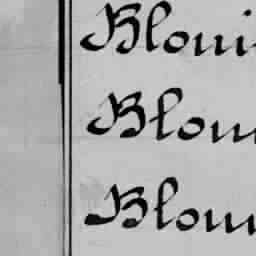 Bloui
Blou
Blou